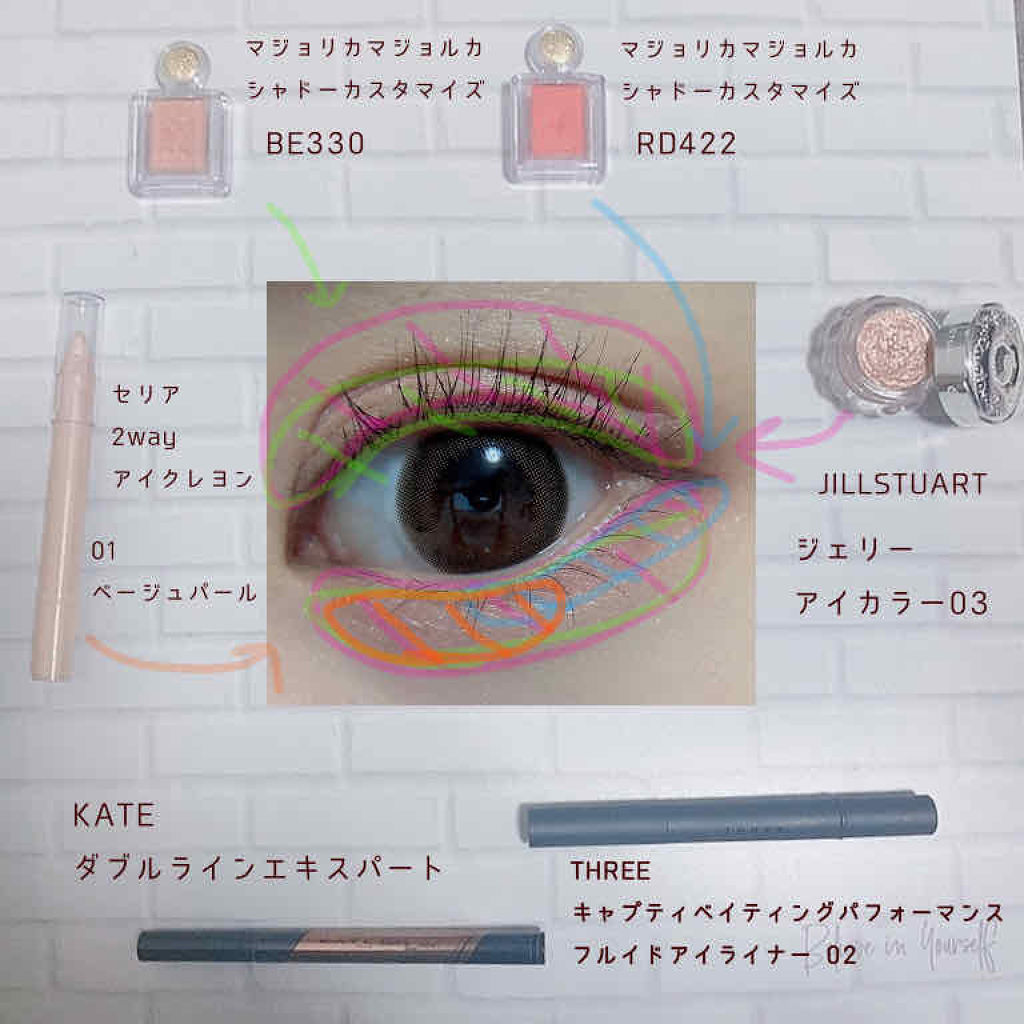 マジョリカマジョルカ
シャドーカスタマイズ
BE330
マジョリカマジョルカ
シャドーカスタマイズ
RD422
セリア
2way
アイクレヨン
01
ベージュパール
JILLSTUART
ジェリー
アイカラー03
KATE
ダブルラインエキスパート
THREE
キャプティベイティングパフォーマンス
フルイドアイライナー 02
in Yourself